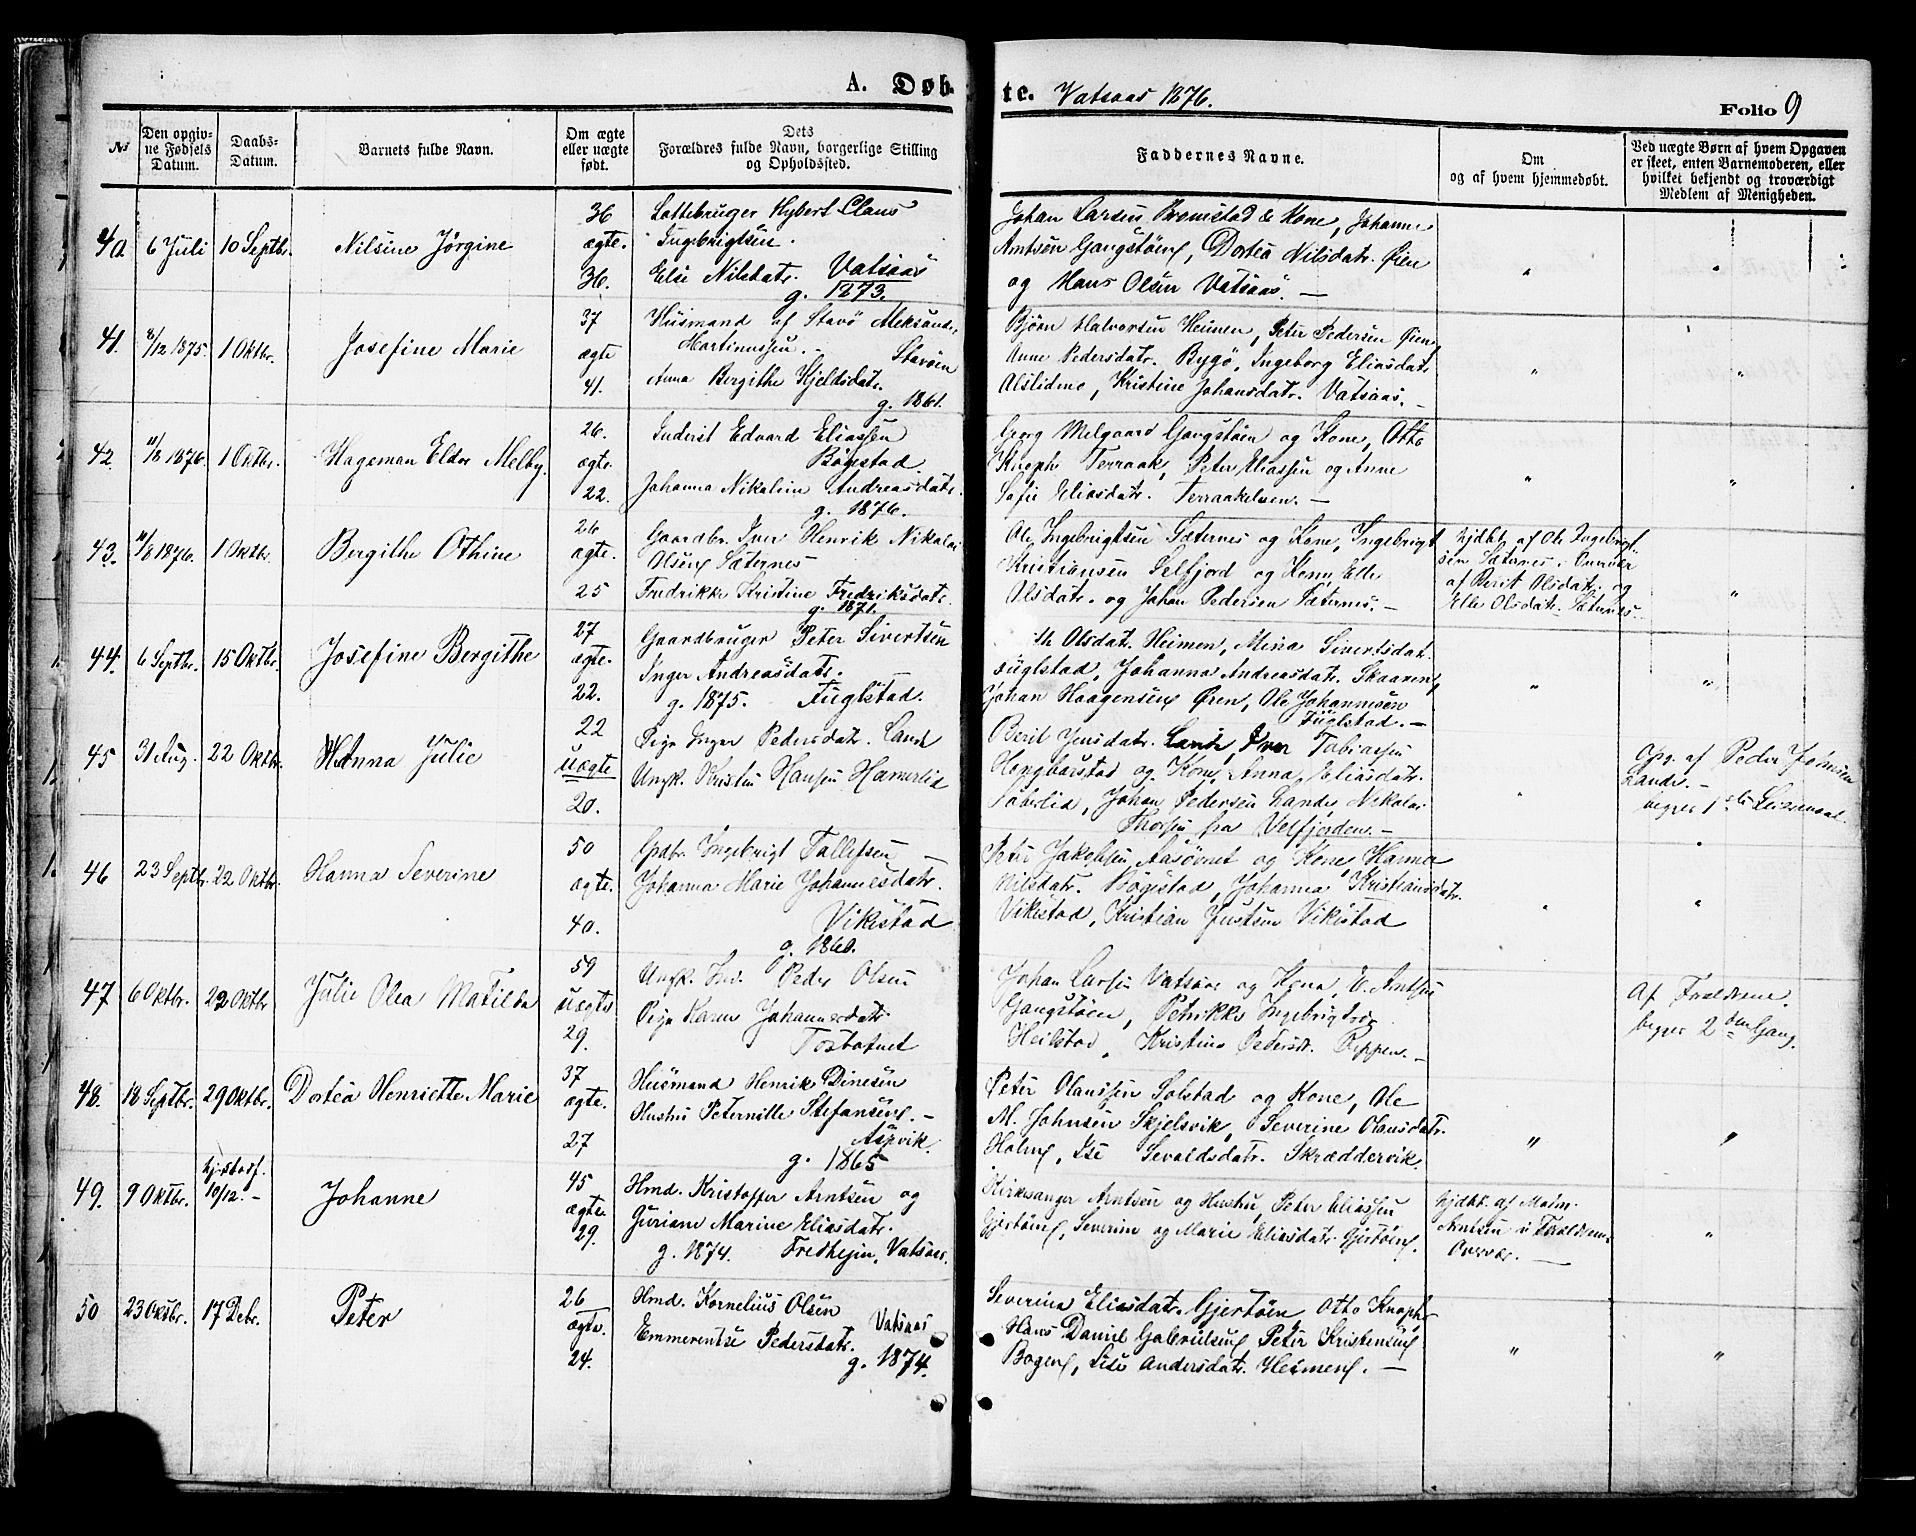 A. Døb-
te. Vatsaas 1876.
Folio 9
No
Den opgiv-
ne Fødsels
Datum.
Daabs-
Datum.
Barnets fulde Navn.
Om ægte
eller uægte
født.
Dets
Forældres fulde Navn, borgerlige Stilling
og Opholdssted.
Faddernes Navne.
Om
og af hvem hjemmedøbt.
Ved uægte Børn af hvem Opgaven
er skeet, enten Barnemoderen, eller
hvilket bekjendt og troværdigt
Medlem af Menigheden.
40. 6 Juli 10 Septbr. Nilsine Jørgine
36
ægte.
36.
Hybert Claus
Ingebrigtsen.
Else Nilsdatr. Vatsaas
g. 1873.
Johan Larsen & Kone, Johanne
Arntsen Gangstøen, Dortea Nilsdatr. Øien
og Hans Olsen Vatsaas. —
41. 8/12 1875. 1 Oktbr. Josefine Marie
37
ægte
41.
Husmand af Stavø
Martinussen. Stavøen
Anna Bergithe Kjeldsdatr.
g. 1861.
Bjørn Halvorsen Heimen, Peter Pedersen Øien,
Anne Pedersdatr. Bygø, Ingeborg Eliasdatr.
Kristine Johansdatr. Vatsaas. —
42. 11/8 1876. 1 Oktbr. Hageman Eldor Melby.
26.
ægte.
22.
Inderst Edvard Eliassen
Bøgestad.
Johanna Nikoline Andreasdatr.
g. 1876.
Georg Melgaard Gangstøen og Kone, Otto
Knoph Terraak, Peter Eliassen og Anne
Sofie Eliasdatr. Terraakelven. —
43. 11/8 1876. 1 Oktbr. Bergithe Othine
26
ægte.
25
Gaardbr. Iver Henrik Nikolai
Olsen Sæternes
Fredrikke Kristine Fredriksdatr.
g. 1871.
Ole Ingebrigtsen Sæternes og Kone, Ingebrigt
Kristiansen Selfjord og Kone, Elle
Olsdatr. og Johan Pedersen Sæternes. —
hjdbt. af Ole Ingebrigt-
sen Sæternes i Overvær
af Berit Olsdatr. og
Elle Olsdatr. Sæternes.
44. 6 Septbr. 15 Oktbr. Josefine Bergithe
27
ægte.
22.
Gaardbruger Peter Sivertsen
Inger Andreasdatr.
g. 1875. Fuglstad.
Olsdat. Heimen, Mina Sivertsdat.
Fuglstad, Johanna Andreasdatr. Skaaren,
Johan Haagensen Øren, Ole Johannesen
Fuglstad. —
45 31 Aug. 22 Oktbr. Hanna Julie
22
uægte
20.
Pige Inger Pedersdatr. Lande
Ungk. Kristen Hansen Hamerlid
Berit Jensdatr. Lande, Iver Tobiassen
og Kone, Anna Eliasdatr.
Johan Pedersen Lande, Nikolai
Thorsen fra Velfjorden. —
Opg. af Peder
Lande. —
begges 1ste Leiermaal.
46 23 Septbr. 22 Oktbr. Hanna Severine
50
ægte.
40.
Gdbr. Ingebrigt Tollefsen
Johanna Marie Johannesdatr.
Vikestad
g. 1860.
Peter Jakobsen Aasøvnet og Kone, Hanna
Nilsdatr. Bøgestad, Johanna Kristiansdatr.
Vikestad, Kristian Justsen Vikestad
47 6 Oktbr. 22 Oktbr Julie Olea Matilda
59
uægte
29.
Ungk. Peder Olsen
Pige Karen Johannesdatr.
Tosbotnet
Johan Larsen Vatsaas og Kone, E. Arntsen
Gangstøen, Petrikke Ingebrigtsdr.
Heilstad, Kristine Pedersdr. Reppen. —
Af Forældrene.
begges 2den Gang.
48. 18 Septbr. 29 Oktbr. Dortea Henriette Marie
37
ægte.
27
Husmand Henrik Dinesen
Hustru Peternille Stefansen. —
Aspvik.
g. 1865
Peter Olaussen Solstad og Kone, Ole
M. Johnsen Skjelsvik, Severine Olausdatr.
Holm, Ise Sevaldsdatr. Skræddervik.
49. 9 Oktbr. hjstadf. 10/12. – Johanne
45
ægte.
29.
Hmd. Kristoffer Arntsen og
Guriane Marine Eliasdatr.
g. 1874. Fredheim, Vatsaas.
Kirkesanger Arntsen og Hustru, Peter Eliassen
Gjestøen, Severine og Marie Eliasdatr. Gjestøen.
hjdbt. af
Arntsen i Forældrenes
Overvær. —
50 23 Oktbr. 17 Debr. Peter
26
ægte.
24.
Hmd. Kornelius Olsen Vatsaas
Emmerentse Pedersdatr.
g. 1874.
Severine Eliasdatr. Gjestøen, Otto Knoph,
Hans Daniel Gabrielsen, Peter Kristensen
Bogen, Lise Andersdatr. Heimen. —